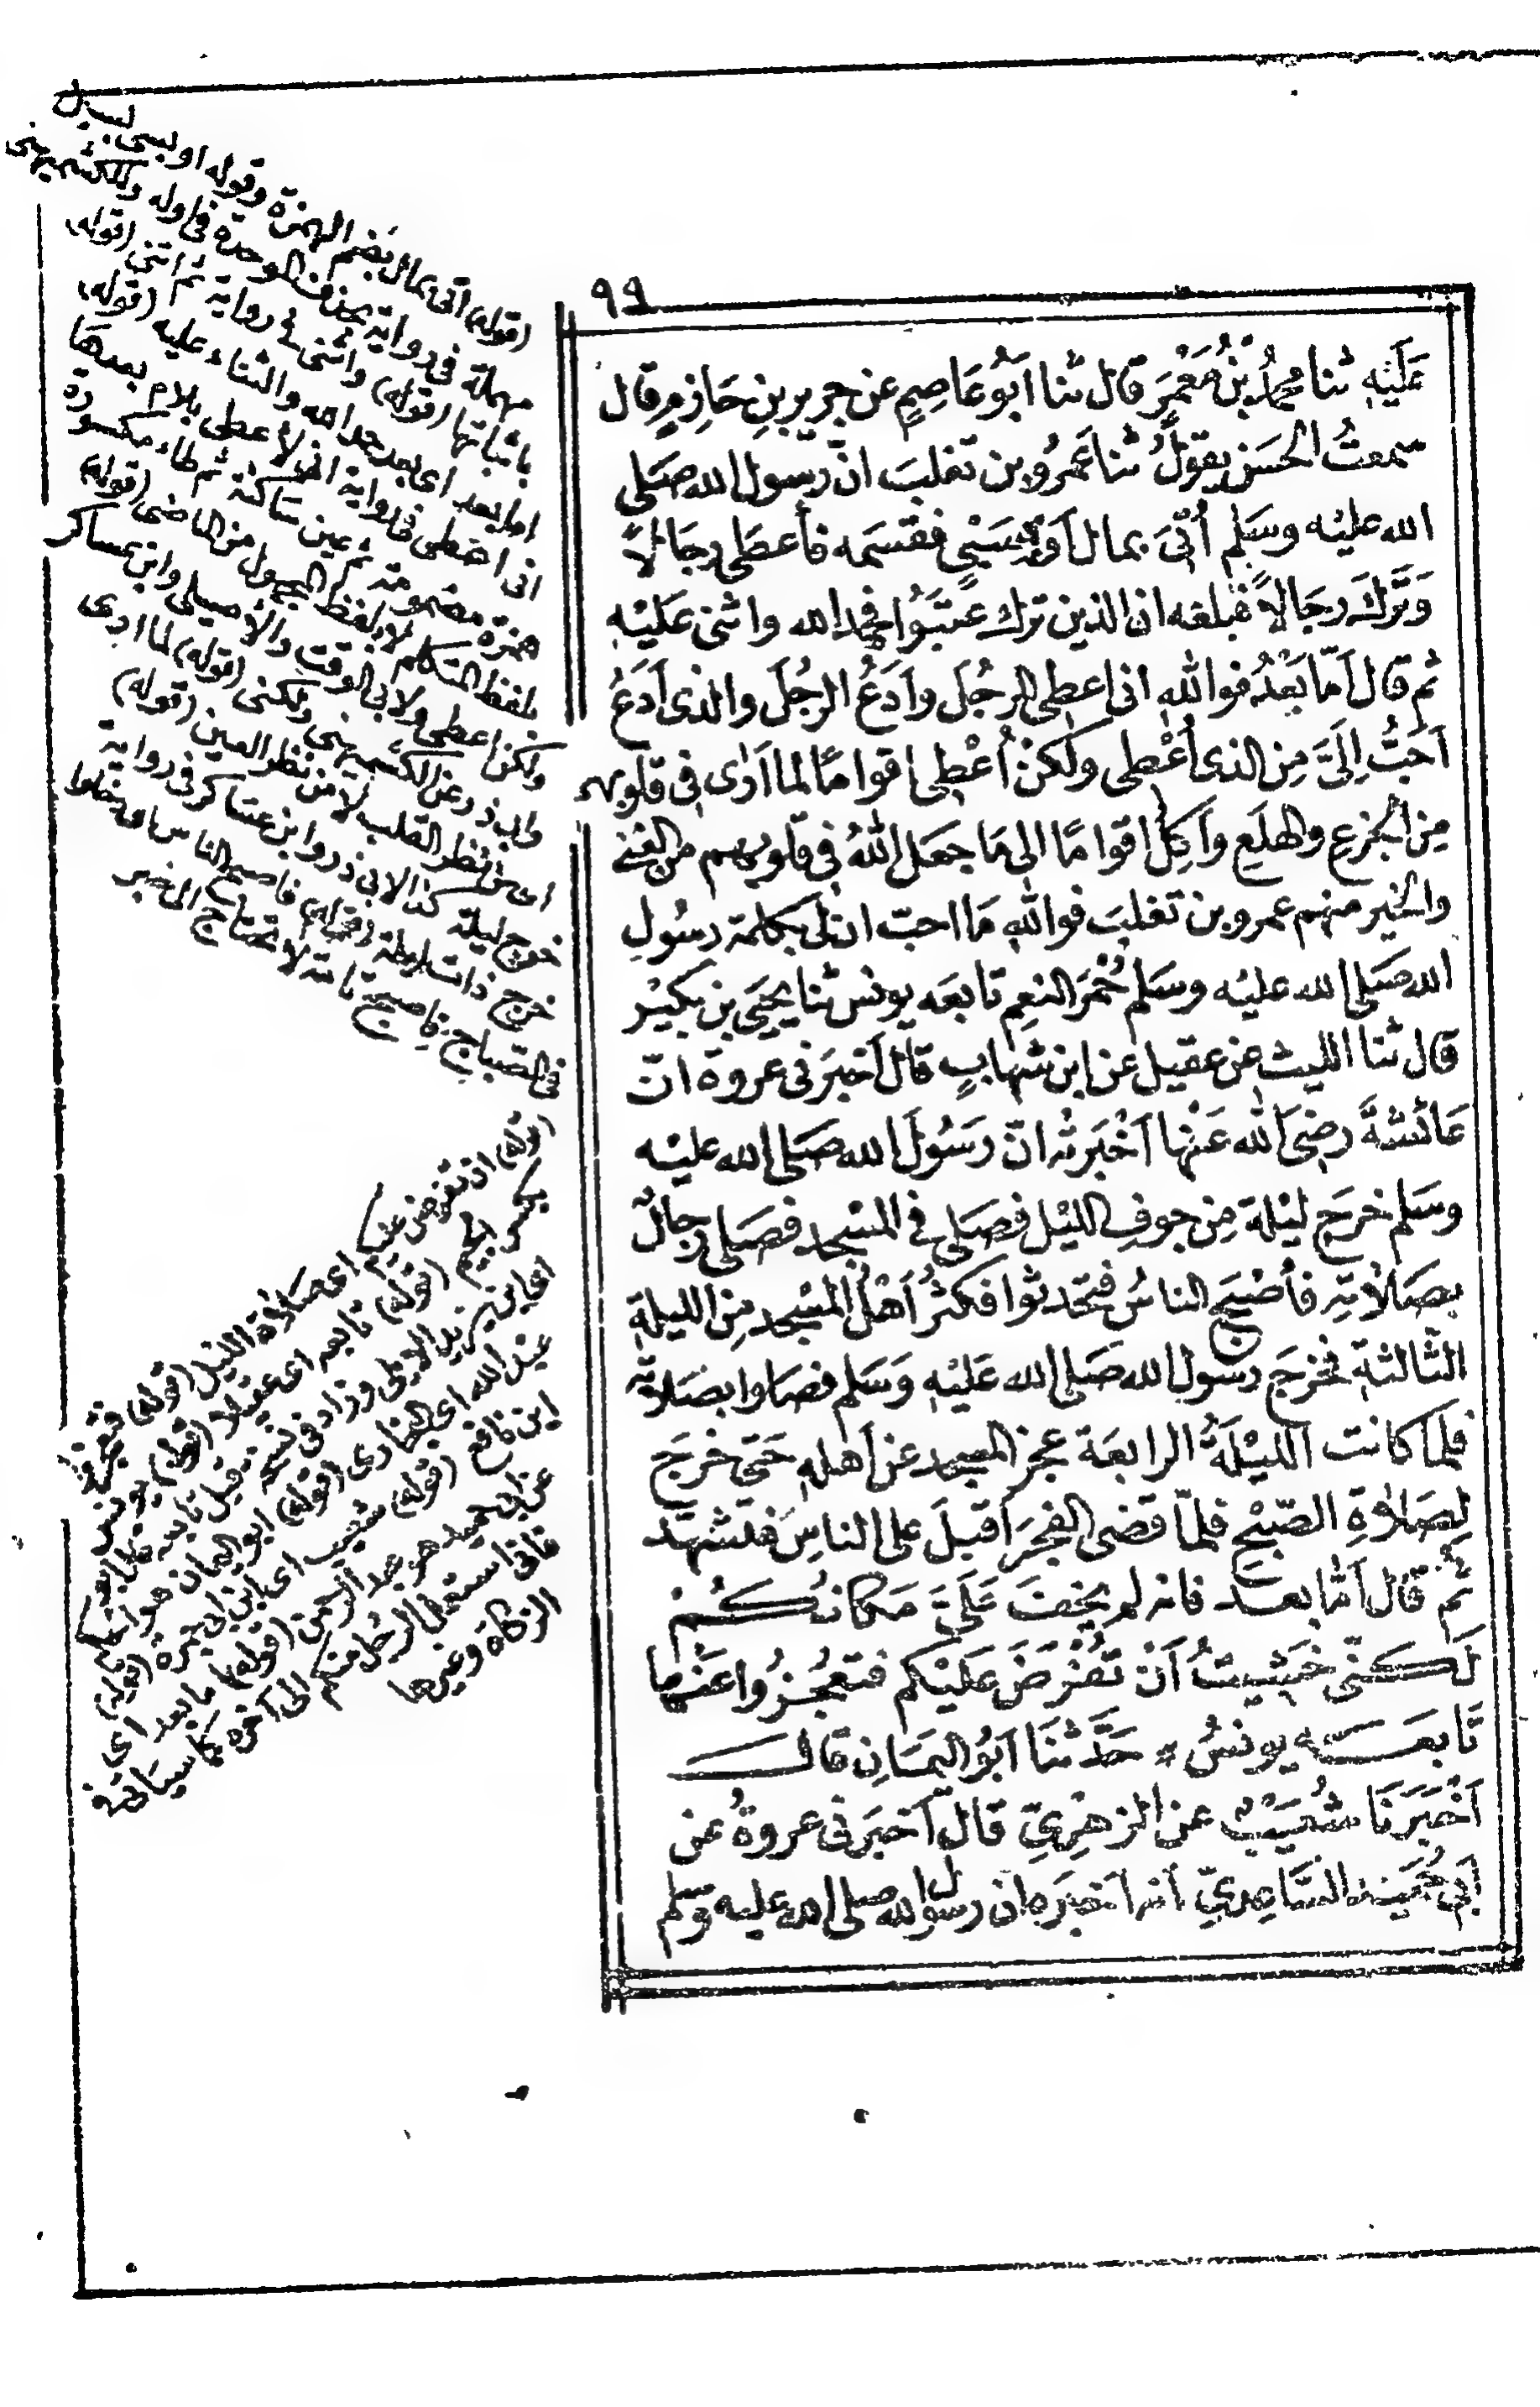 ٩٩
عَلَيْهِ ثنا محمدُ بْنُ مَعْمَرَ قال ثنا اَبُو عَاصِمٍ عن جريرِ بنِ حَازِمٍ قال
سمعتُ الحسَن يقولُ ثنا عَمْرُو بن تغلبَ انّ رسول الله صَلى
الله عليْه وسَلم اُتِىَ بمال اَوْ بسَبْىٍ فقسَمه فأعطَى رجَالاً
وَتَرَكَ رجَالاً فبلغه ان الذين ترك عَتَبُوا فحمد الله واثنى عَلَيْهِ
ثم قال اَمّا بَعْدُ فوالله انى اعطى الرجُلَ وأدَعُ الرجُلَ والذى اَدَعُ
اَحَبُّ اِلَىَّ مِن الذى اُعْطِى ولكنْ اُعْطِى اقوامًا لما اَرٰى فى قلوبهم
مِن الجزعِ والهلَعِ وَاَكِلُ اقوامًا الى مَا جعَل اللهُ فى قلوبهم من الغنى
والخير منهم عمرو بن تغلبَ فواللهِ مَا احبّ ان لى بكلمة رسُولِ
الله صَلى الله عليْه وسَلم حُمْرَ النعم تابعَه يونس ثنا يحيَى بن بكيْر
قال ثنا الليث عن عقيل عن ابن شهابٍ قال اَخبرَنى عروة انّ
عَائشةَ رضى الله عَنْها اَخْبَرتْه انّ رَسُولَ الله صَلى الله عليْه
وسَلم خرجَ ليْلة مِن جوفِ الليْل فصَلى فى المسْجد فصَلى رجالٌ
بصَلاتِهِ فأصْبَح الناسُ فتحدثوا فكثرُ اَهْلُ المسْجد مِن الليلة
الثالثةِ فخرجَ رسول الله صَلى الله عَليْهِ وَسَلم فصَلوا بصَلاته
فلما كانت الليْلَةُ الرابعَة عجز المسجد عن اَهلهِ حَتى خرجَ
لِصَلاةِ الصّبْحِ فلمّا قضى الفجرَ اَقبلَ على الناسِ فتشهّد
ثمّ قال اَمّا بعد فانه لم يخفَ عَلَىَّ مَكانُكُمْ
لَكنّى خشيتُ اَنْ تُفْرَضَ عَليْكم فتعْجزُوا عَنْها
تَابعَه يونسُ حَدَّثنَا اَبُو اليمَانِ قَال
اَخْبَرَنَا شُعَيْبٌ عن الزهْرِىِّ قال اَخبرَنى عروةُ عن
اَبى حُمَيْد السَّاعِدىِّ اَنه اَخبَرَه ان رسول الله صلى الله عليه وسلم
(قوله) اتى بمال بضم الهمزة وقوله او بسى بسين
مهملة فى رواية بحذف الموحدة فى اوله وللكشميهنى
باثباتها (قوله) واثنى فى رواية ثم اثنى (قوله)
اما بعد اى بعد حمد الله والثناء عليه (قوله)
انى اعطى فى رواية انى لأعطى بلام بعدها
همزة مضمومة ثم عين ساكنة ثم طاء مكسورة
بلفظ المتكلم لا بلفظ المجهول من الماضى (قوله)
ولكن اعطى ولابى الوقت والأصيلى وابن عساكر
وابى ذر عن الكشميهنى ولكنى (قوله) لما ارى
اى من نظر القلب لا من نظر العين (قوله)
خرج ليلة كذا لابى ذر وابن عساكر فى رواية
خرج ذات ليلة (قوله) فاصبح الناس اى دخلوا
فى الصباح فاصبح تامة لا تحتاج الى خبر
(قوله) ان تفرض عليكم اى صلاة الليل (قوله) فتعجزوا
بكسر الجيم (قوله) تابعه اى عقيلا (قوله) يونس
اى ابن يزيد الايلى وزاد فى نسخة قبل تابعه قال ابو
عبد الله اى البخارى (قوله) ابو اليمان هو الحكم
ابن نافع (قوله) شعيب اى ابن ابى حمزة (قوله)
عن ابى حميد هو عبد الرحمن (قوله) ما بعد اى
فانى استعمل الرجل منكم الى آخره كما سيأتى فى
الزكاة وغيرها